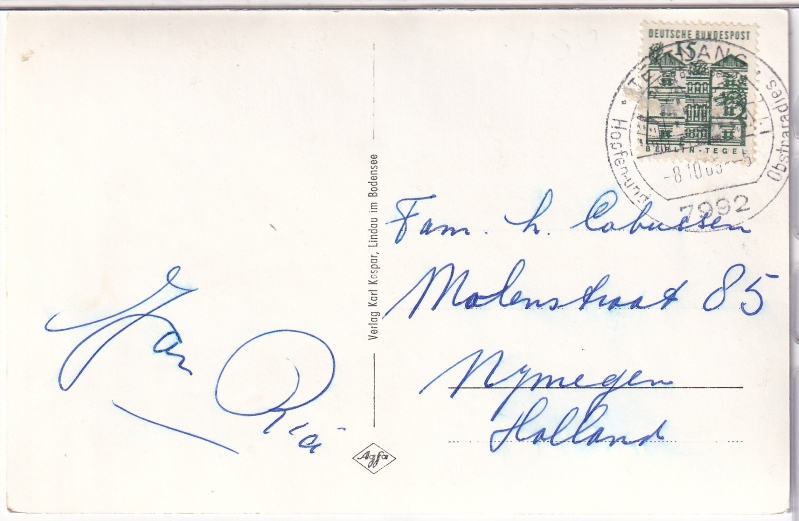 DEUTSCHE BUNDESPOST
15
BERLIN-TEGEL
TETTNANG
Hopfen- und
Obstparadies
-8.10.65
7992
Fam. h. Cobussen
Molenstraat 85
Nymegen
Holland
Jan
Ria
Verlag Karl Kaspar, Lindau im Bodensee
Agfa